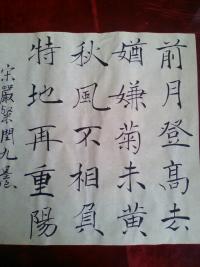 前月登髙去
猶嫌菊未黃
秋風不相負
特地再重陽
宋嚴粲閏九